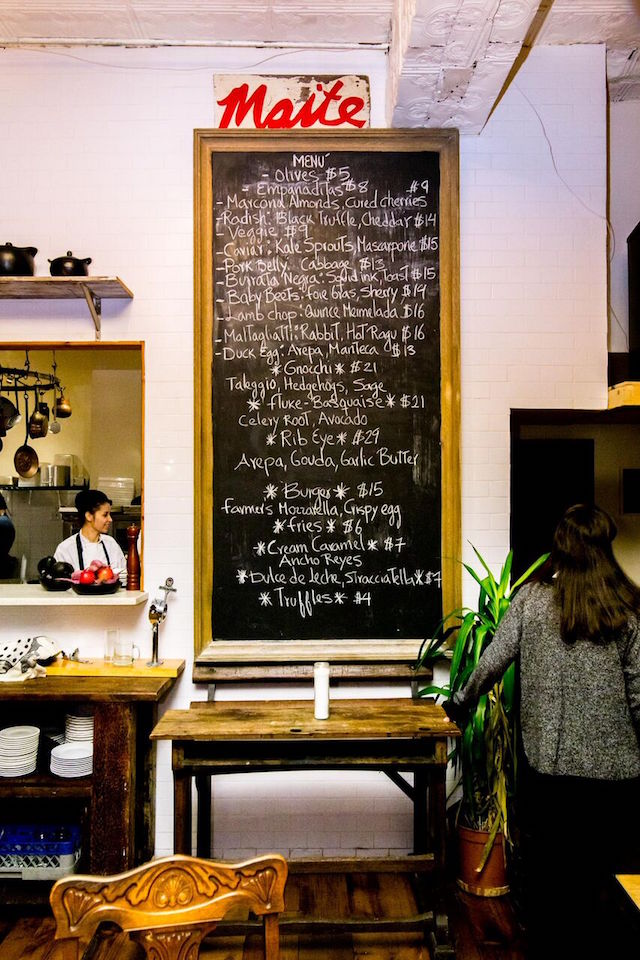 Maite
MENÚ
- Olives $5
- Empanaditas $8 #9
- Marcona Almonds, Cured cherries
- Radish: Black Truffle, Cheddar $14
Veggie $9
- Caviar: Kale Sprouts, Mascarpone $15
- Pork Belly: Cabbage $13
- Burrata Negra: Squid ink, Toast $15
- Baby Beets: Foie Gras, Sherry $19
- Lamb chop: Quince Mermelada $16
- Maltagliatti: Rabbit, Hot Ragu $16
- Duck Egg: Arepa, Manteca $13
* Gnocchi * $21
Taleggio, Hedgehogs, Sage
* Fluke - Basquaise * $21
Celery Root, Avocado
* Rib Eye * $29
Arepa, Gouda, Garlic Butter
* Burger * $15
Farmer's Mozzarella, Crispy egg
* fries * $6
* Cream Caramel * $7
Ancho Reyes
* Dulce de leche, Stracciatella * $7
* Truffles * $4